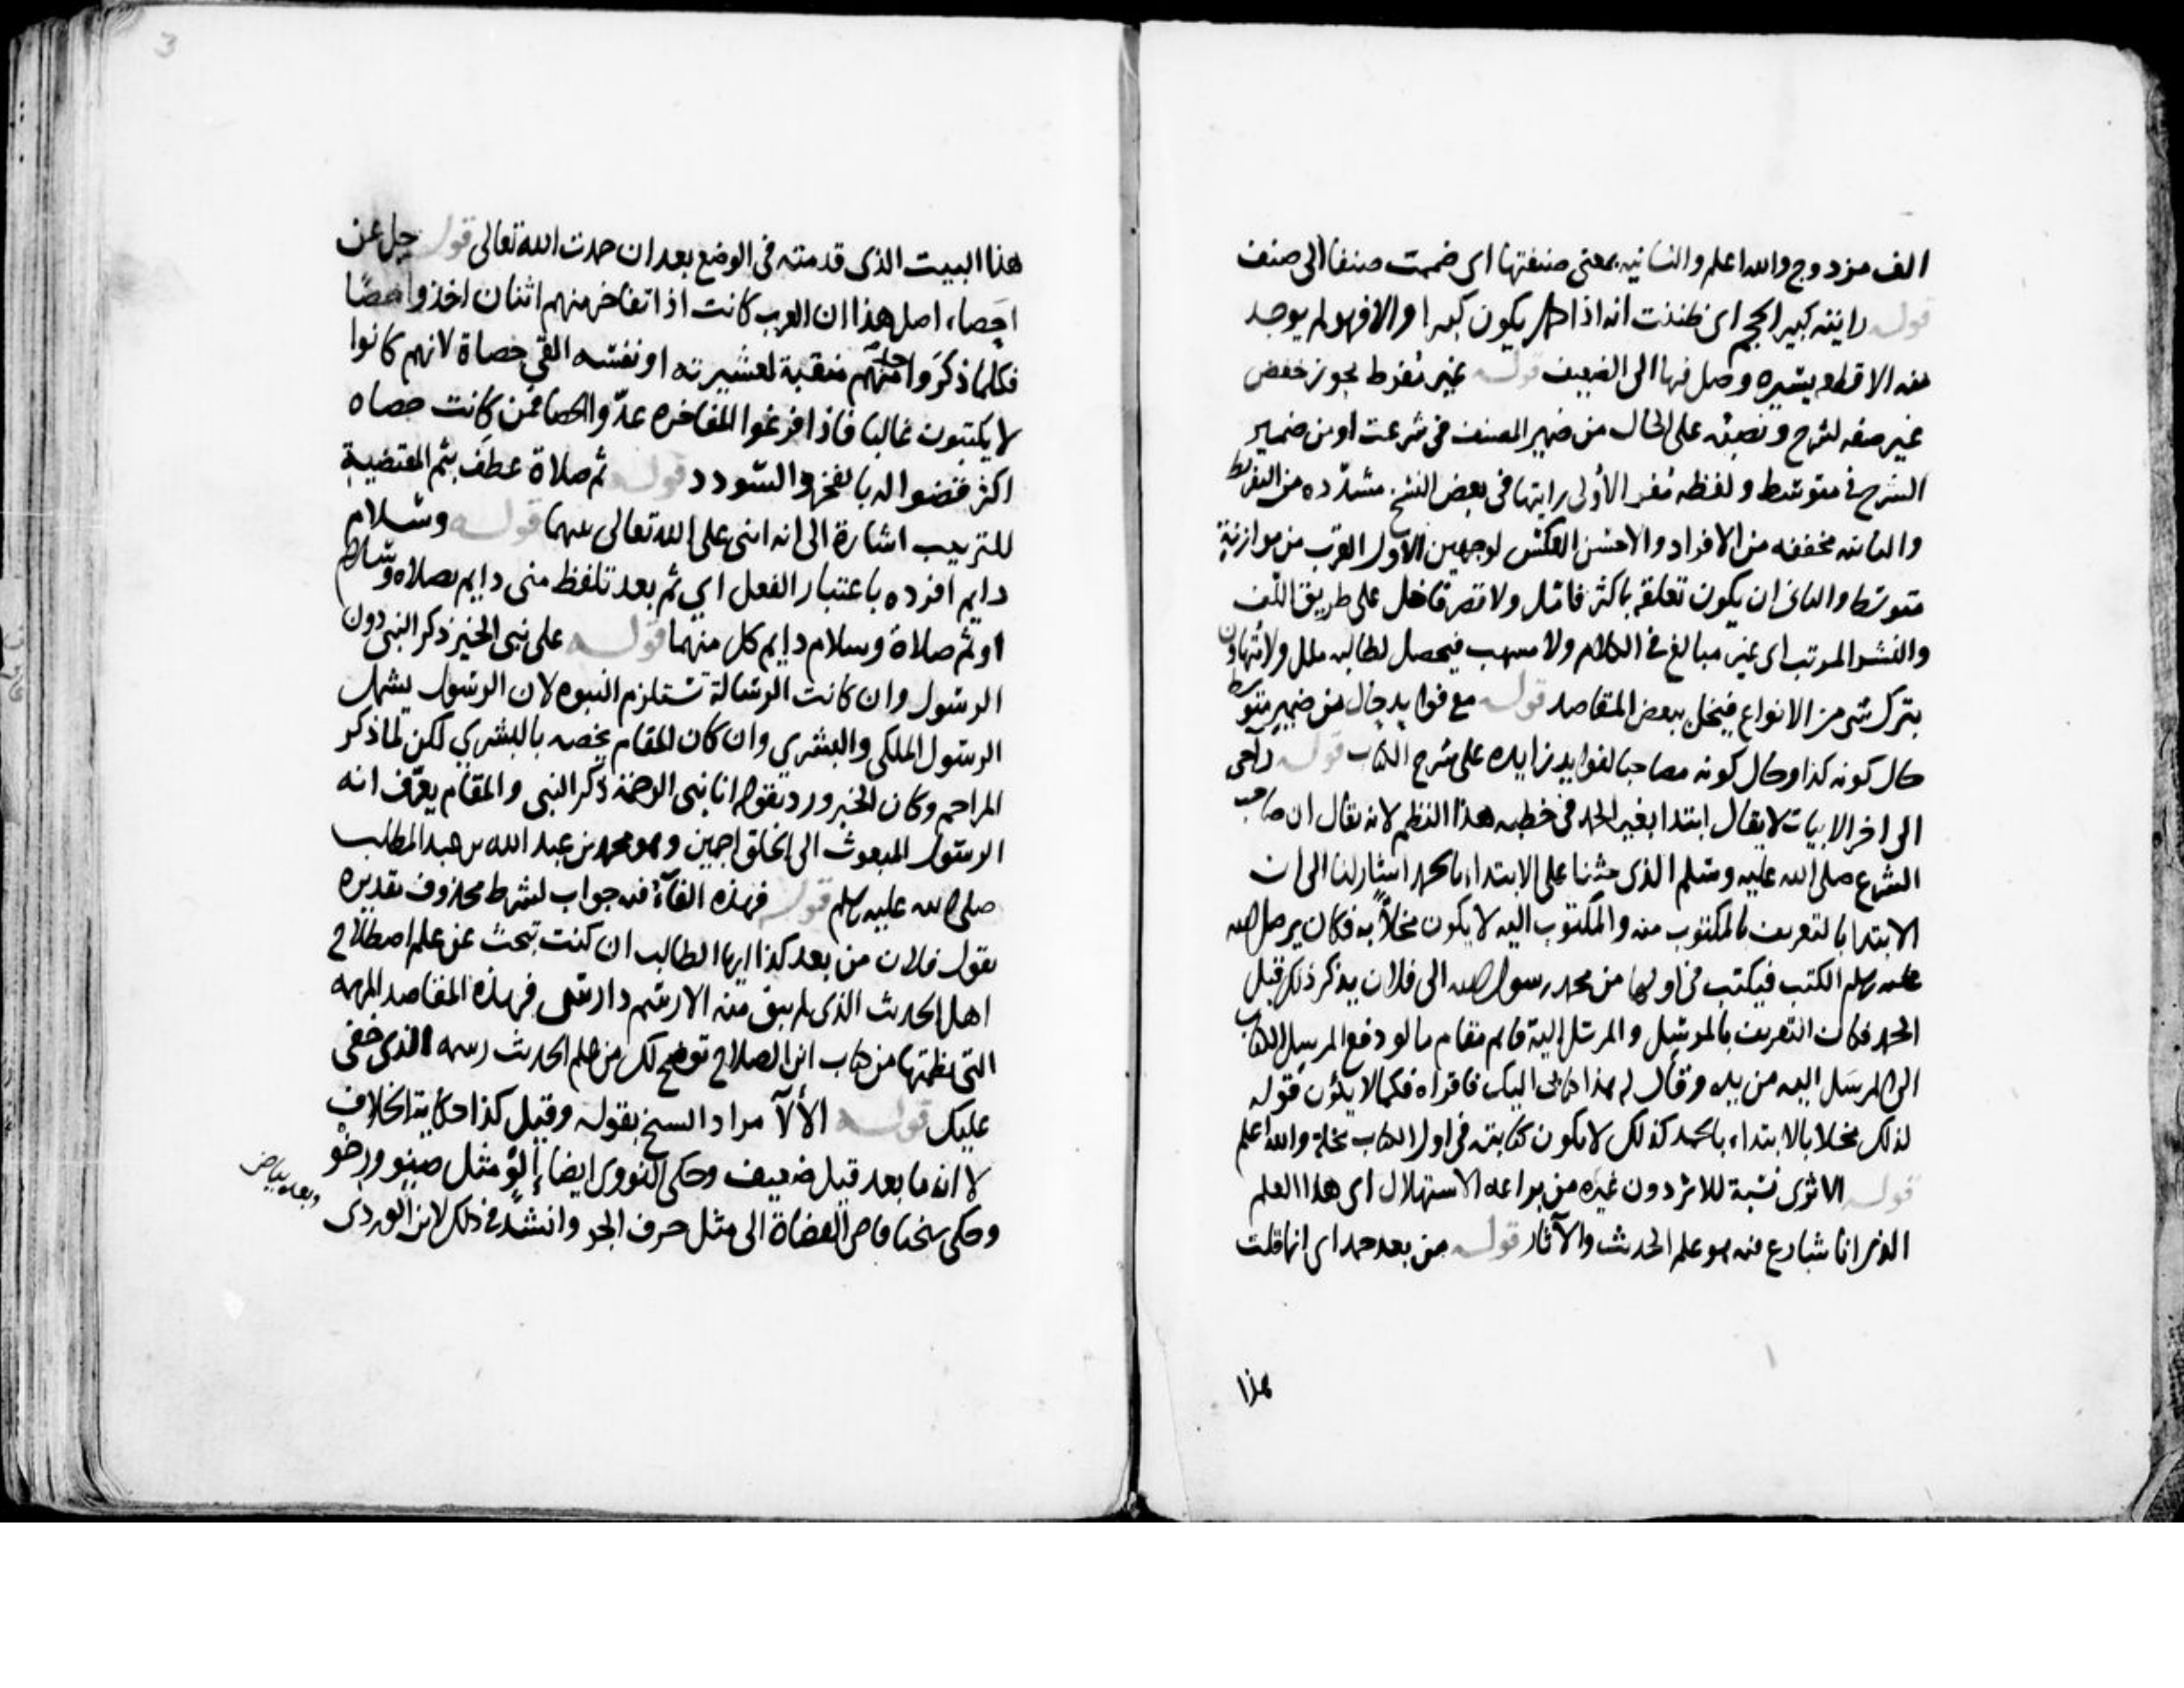 الف مزدوج والله اعلم والثانيه بمعنى صنفتها اى ضممت صنفا الى صنف
قوله رايته كبير الحجم اى ظننت انه اذا كمل يكون كبيرا والا فهو لم يوجد
منه الا قطعه يسيره وصل فيها الى الضعيف قوله غير مُفرط يجوز خفض
غير صفه لشرح ونصبه على الحال من ضمير المصنف فى شرعت او من ضمير
الشرح فى متوسط ولفظه مُفرط الأولى رايتها فى بعض النسخ مشدّده من التفريط
والثانيه مخففه من الافراط والاحسن العكس لوجهين الاول القرب من موازنة
متوسط والثانى ان يكون تعلقه باكثر فائمل ولا تقصر فاخل على طريق اللف
والنشر المرتب اى غير مبالغ فى الكلام ولا مسهب فيحصل لطالبه ملل ولا متهاون
بترك شى من الانواع فيخل ببعض المقاصد قوله مع فوايد حال من ضمير متوسط
حال كونه كذا وحال كونه مصاحبا لفوايد زايده على شرح الكتاب قوله راجى
الى اخر الابيات لا يقال ابتدا بغير الحمد فى خطبه هذا النظم لانه يقال ان صاحب
الشرع صلى الله عليه وسلم الذى حثنا على الابتداء بالحمد اشار لنا الى ان
الابتدا بالتعريف بالمكتوب منه والمكتوب اليه لا يكون مخلاً به فكان يرسل صلى الله
عليه وسلم الكتب فيكتب فى اولها من محمد رسول الله الى فلان يذكر ذلك قبل
الحمد فكان التعريف بالمرسِل والمرسَل اليه قايم مقام ما لو دفع المرسِل الكتاب
الى المرسَل اليه من يده وقال له هذا كتابى اليك فاقراه فكما لا يكون قوله
لذلك مخلا بالابتداء بالحمد كذلك لا يكون كتابته فى اول الكتاب مخلة والله اعلم
قوله الاثرى نسبة للاثر دون غيره من براعه الاستهلال اى هذا العلم
الذى انا شارع فيه هو علم الحديث والآثار قوله من بعد حمد اى انما قلت
هذا
3
هذا البيت الذى قدمته فى الوضع بعد ان حمدت الله تعالى قوله جل عن
احصاء اصل هذا ان العرب كانت اذا تفاخر منهم اثنان اخذوا حصًا
فكلما ذكرَوا منهم منقبة لعشيرته او نفسه القى حصاة لانهم كانوا
لا يكتبون غالبا فاذا فرغوا المفاخره عدّوا الحصا فمن كانت حصاه
اكثر قضوا له بالفخر والسّودد قوله ثم صلاة عطف بثم المقتضية
للترتيب اشارة الى انه اثنى على الله تعالى عنهما قوله وسلام
دايم افرده باعتبار الفعل اي ثم بعد تلفظ منى دايم بصلاه وسلام
او ثم صلاة وسلام دايم كل منهما قوله على نبى الخير ذكر النبى دون
الرسول وان كانت الرسالة تستلزم النبوه لان الرسول يشمل
الرسول الملكى والبشري وان كان المقام يخصه بالبشري لكن لما ذكر
المراحم وكان الخبر ورد بقوله انا نبى الرحمة ذكر النبى والمقام يعرّف انه
الرسول المبعوث الى الخلق اجمعين وهو محمد بن عبد الله بن عبد المطلب
صلى الله عليه وسلم قوله فهذه الفآء فيه جواب لشرط محذوف تقديره
يقول فلان من بعد كذا ايها الطالب ان كنت تبحث عن علم اصطلاح
اهل الحديث الذى لم يبق منه الا رسم دارس فهذه المقاصد المهمه
التى نظمتها من كتاب ابن الصلاح توضح لك من علم الحديث رسمه الذى خفى
عليك قوله الألآ مراد الشيخ بقوله وقيل كذا حكاية الخلاف
لا انه ما بعد قيل ضعيف وحكى النووى ايضا إِلْوٌ مثل صِنْو ورِخْو
وحكى شيخنا قاضى القضاة الى مثل حرف الجر وانشد فى ذلك لابن الوردى
وبعده بياض